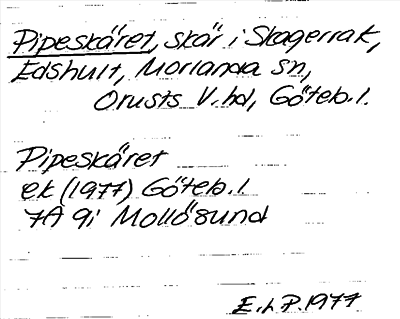 Pipeskäret, skär i Skagerrak,
Edshult, Morlanda sn,
Orusts V. hd, Göteb. l.
Pipeskäret
ek (1977) Göteb. l
7A 9i Mollösund
E. h P. 1977